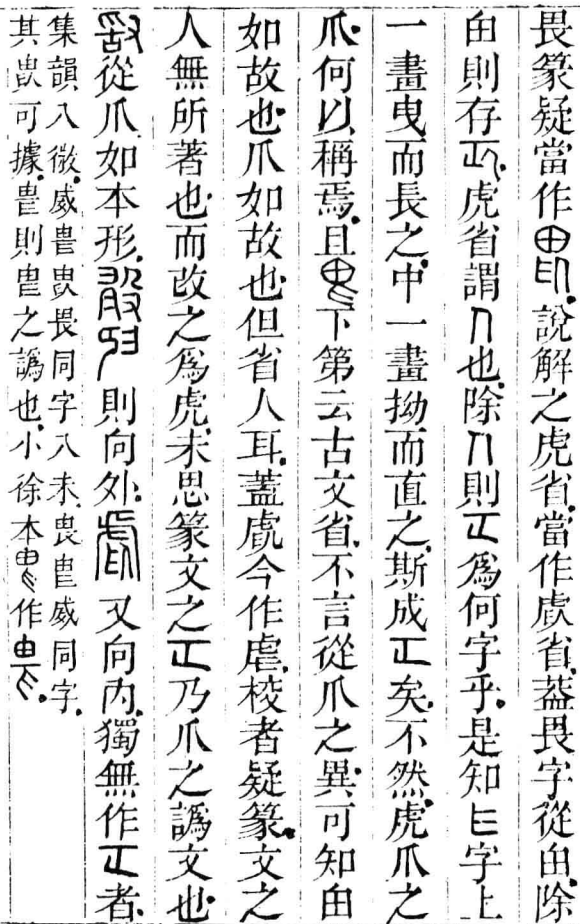 畏篆疑當作說解之虎省當作虐省蓋畏字從甶除
甶則存虎省謂也除則為何字乎是知字上
一畫曳而長之中一畫拗而直之斯成矣不然虎爪之
爪何以稱焉且下第云古文省不言從爪之異可知甶
如故也爪如故也但省人耳蓋今作虐校者疑篆文之
人無所著也而改之爲虎未思篆文之乃爪之譌文也
從爪如本形則向外又向內獨無作者
集韻八微威畏同字八未畏威同字
其可據則之譌也小徐本作